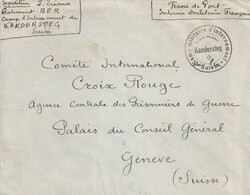 Expéditeur
Batiment BER
Camp d'internement de
KANDERSTEG
Suisse
Franc de Port
Interné Militaire Français
Kandersteg
Comité International
Croix Rouge
Agence Centrale des Prisonniers de Guerre
Palais du Conseil Général
Geneve
(Suisse)